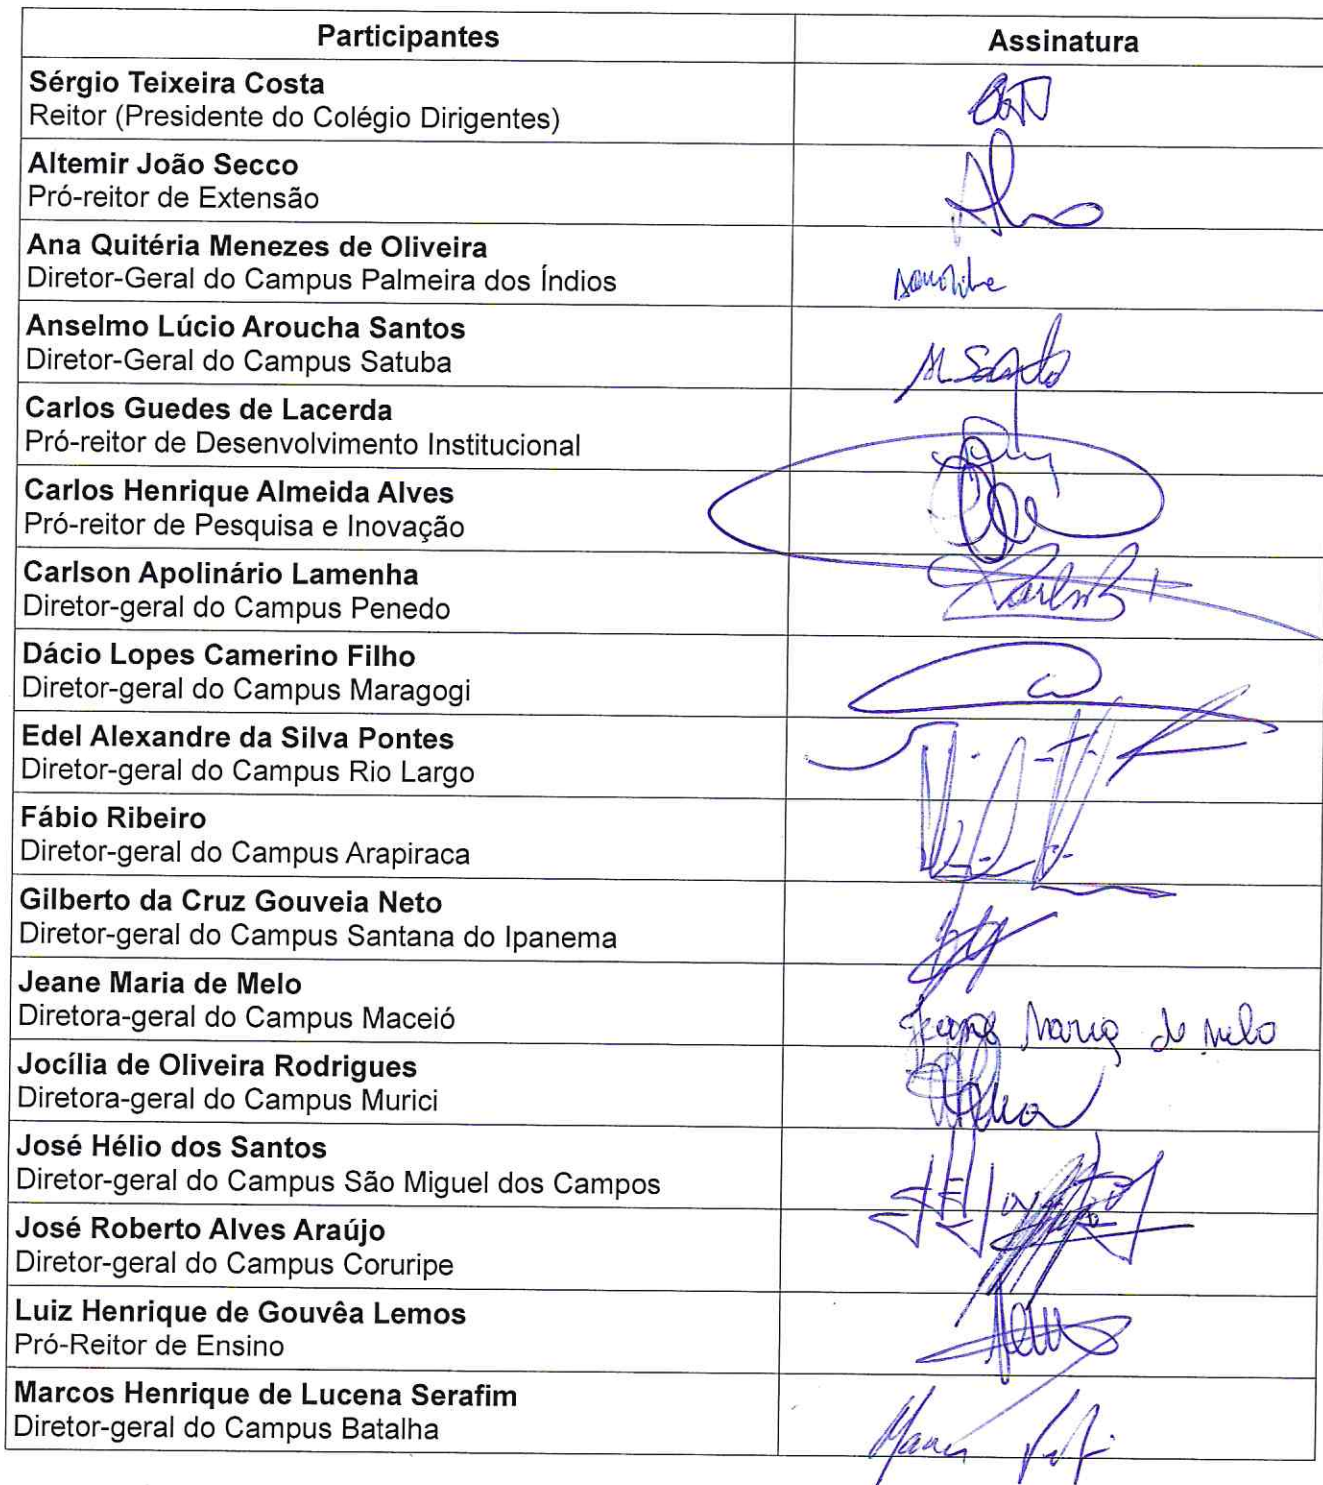 Participantes Assinatura
Sérgio Teixeira Costa
Reitor (Presidente do Colégio Dirigentes)
Altemir João Secco
Pró-reitor de Extensão
Ana Quitéria Menezes de Oliveira
Diretor-Geral do Campus Palmeira dos Índios
Anselmo Lúcio Aroucha Santos
Diretor-Geral do Campus Satuba
Carlos Guedes de Lacerda
Pró-reitor de Desenvolvimento Institucional
Carlos Henrique Almeida Alves
Pró-reitor de Pesquisa e Inovação
Carlson Apolinário Lamenha
Diretor-geral do Campus Penedo
Dácio Lopes Camerino Filho
Diretor-geral do Campus Maragogi
Edel Alexandre da Silva Pontes
Diretor-geral do Campus Rio Largo
Fábio Ribeiro
Diretor-geral do Campus Arapiraca
Gilberto da Cruz Gouveia Neto
Diretor-geral do Campus Santana do Ipanema
Jeane Maria de Melo
Diretora-geral do Campus Maceió
Jeane Maria de Melo
Jocília de Oliveira Rodrigues
Diretora-geral do Campus Murici
José Hélio dos Santos
Diretor-geral do Campus São Miguel dos Campos
José Roberto Alves Araújo
Diretor-geral do Campus Coruripe
Luiz Henrique de Gouvêa Lemos
Pró-Reitor de Ensino
Marcos Henrique de Lucena Serafim
Diretor-geral do Campus Batalha